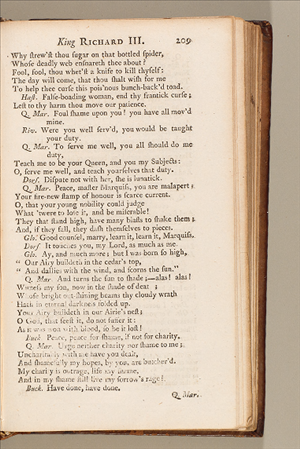 King RICHARD III. 209
Why ſtrew'ſt thou ſugar on that bottled ſpider,
Whoſe deadly web enſnareth thee about?
Fool, fool, thou whet'ſt a knife to kill thyſelf:
The day will come, that thou ſhalt wiſh for me
To help thee curſe this pois'nous bunch-back'd toad.
Haſt. Falſe-boading woman, end thy frantick curſe;
Leſt to thy harm thou move our patience.
Q. Mar. Foul ſhame upon you! you have all mov'd
mine.
Riv. Were you well ſerv'd, you would be taught
your duty.
Q. Mar. To ſerve me well, you all ſhould do me
duty,
Teach me to be your Queen, and you my Subjects:
O, ſerve me well, and teach yourſelves that duty.
Dorſ. Diſpute not with her, ſhe is lunatick.
Q. Mar. Peace, maſter Marquiſs, you are malapert;
Your fire-new ſtamp of honour is ſcarce current.
O, that your young nobility could judge
What 'twere to loſe it, and be miſerable!
They that ſtand high, have many blaſts to ſhake them;
And, if they fall, they daſh themſelves to pieces.
Glo. Good counſel, marry, learn it, learn it, Marquiſs.
Dorſ It touches you, my Lord, as much as me.
Glo. Ay, and much more; but I was born ſo high,
" Our Airy buildeth in the cedar's top,
" And dallies with the wind, and ſcorns the ſun."
Q. Mar. And turns the ſun to ſhade;—alas! alas!
Witneſs my ſon, now in the ſhade of death;
Whoſe bright out-ſhining beams thy cloudy wrath
Hath in eternal darkneſs folded up.
Your Airy buildeth in our Airie's neſt;
O God, that ſeeſt it, do not ſuffer it:
As it was won with blood, ſo be it loſt!
Buck. Peace, peace for ſhame, if not for charity.
Q. Mar. Urge neither charity nor ſhame to me;
Uncharitably with me have you dealt,
And ſhamefully my hopes, by you, are butcher'd.
My charity is outrage, life my ſhame,
And in my ſhame ſtill live my ſorrow's rage!
Buck. Have done, have done.
Q. Mar.